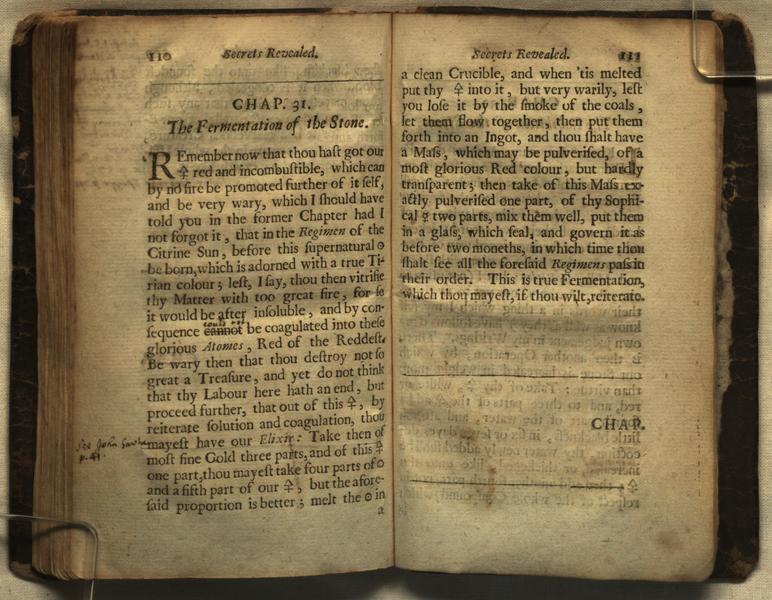 110 Secrets Revealed.
CHAP. 31.
The Fermentation of the Stone.
REmember now that thou haſt got our
🜍 red and incombuſtible, which can
by no fire be promoted further of it ſelf,
and be very wary, which I ſhould have
told you in the former Chapter had I
not forgot it, that in the Regimen of the
Citrine Sun, before this ſupernatural ☉
be born, which is adorned with a true Ti-
rian colour; leſt, I ſay, thou then vitrifie
thy Matter with too great fire, for ſo
it would be after inſoluble, and by con-
ſequence cannot be coagulated into theſe
glorious Atomes, Red of the Reddeſt.
Be wary then that thou deſtroy not ſo
great a Treaſure, and yet do not think
that thy Labour here hath an end, but
proceed further, that out of this 🜍, by
reiterate ſolution and coagulation, thou
mayeſt have our Elixir: Take then of
moſt fine Gold three parts, and of this 🜍
one part, thou mayeſt take four parts of ☉
and a fifth part of our 🜍, but the afore-
ſaid proportion is better; melt the ☉ in
a
See John
p. 41.
Secrets Revealed. 111
a clean Crucible, and when 'tis melted
put thy 🜍 into it, but very warily, leſt
you loſe it by the ſmoke of the coals,
let them flow together, then put them
forth into an Ingot, and thou ſhalt have
a Maſs, which may be pulveriſed, of a
moſt glorious Red colour, but hardly
tranſparent; then take of this Maſs ex-
actly pulveriſed one part, of thy Sophi-
cal ☿ two parts, mix them well, put them
in a glaſs, which ſeal, and govern it as
before two moneths, in which time thou
ſhalt ſee all the foreſaid Regimens paſs in
their order. This is true Fermentation,
which thou mayeſt, if thou wilt, reiterate.
CHAP.